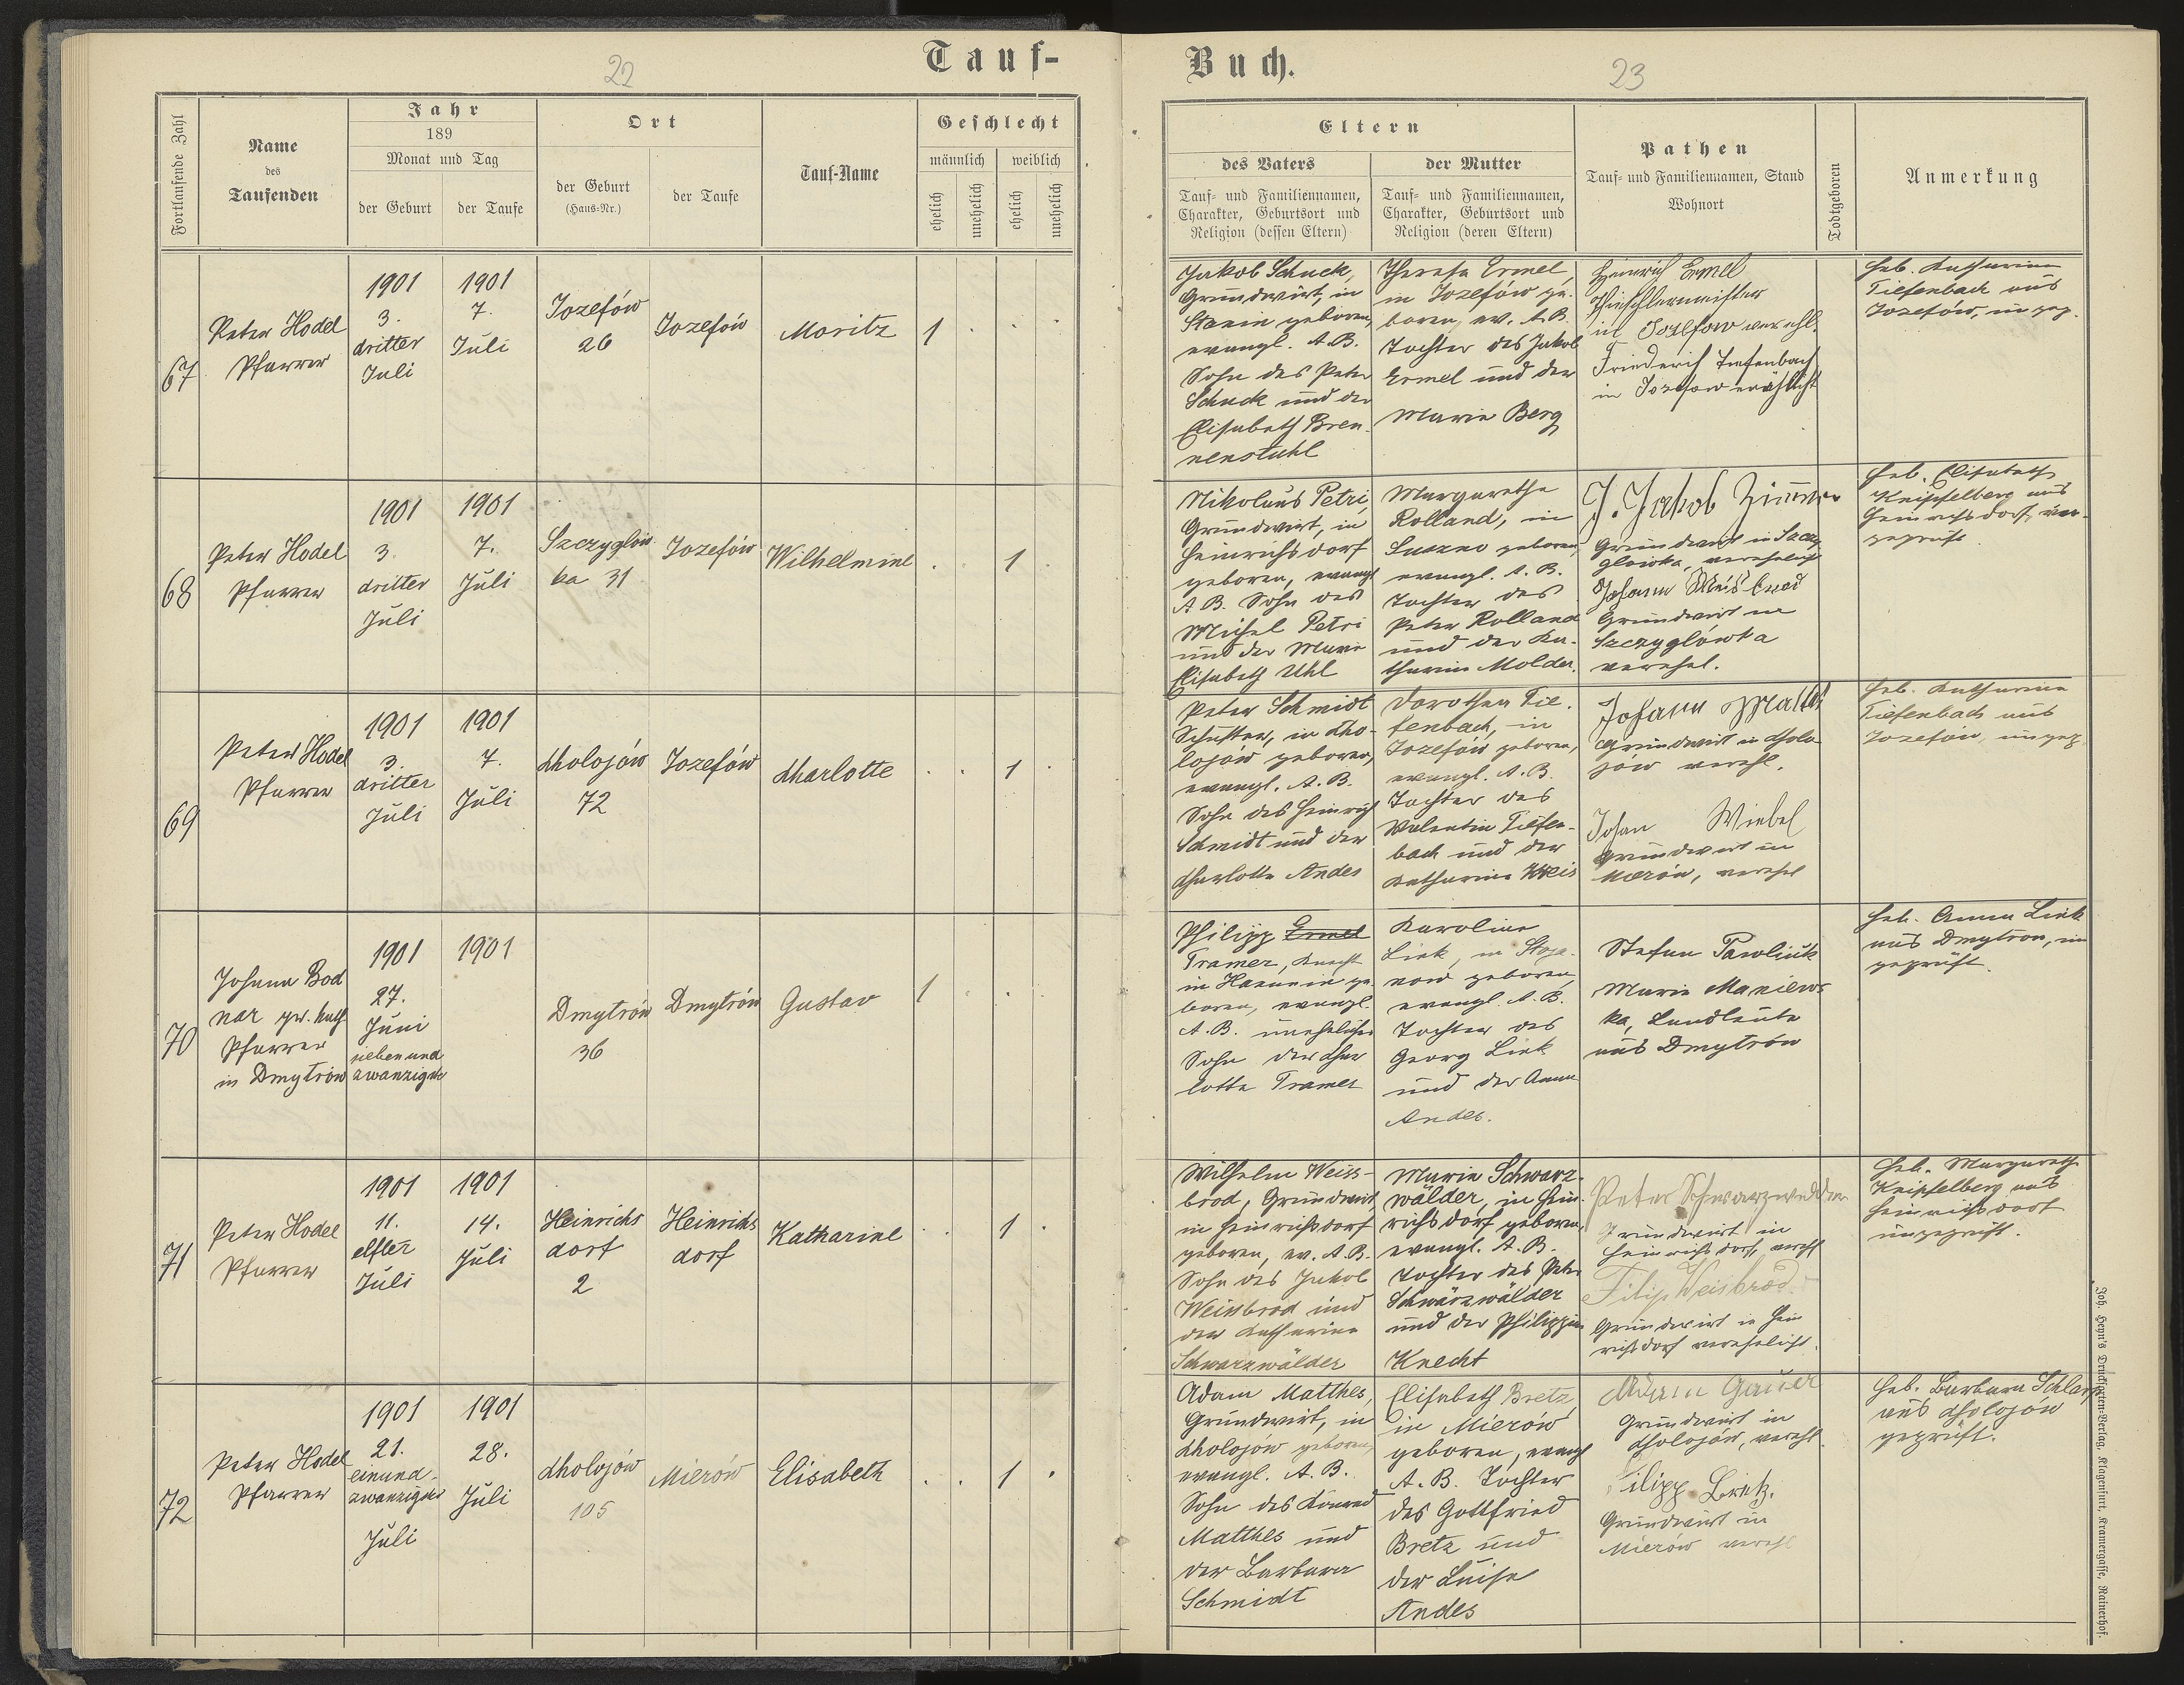 22
Tauf-
Fortlaufende Zahl
Name
des
Taufenden
Jahr
189
Monat und Tag
der Geburt
der Taufe
Ort
der Geburt
(Haus-Nr.)
der Taufe
Tauf-Name
Geschlecht
männlich
weiblich
ehelich
unehelich
ehelich
unehelich
67
Peter Hodel
Pfarrer
1901
3.
dritter
Juli
1901
7.
Juli
Jozefów
26
Jozefów
Moritz
1
68
Peter Hodel
Pfarrer
1901
3.
dritter
Juli
1901
7.
Juli
Szczyglów
ka 31
Jozefów
Wilhelmine
1
69
Peter Hodel
Pfarrer
1901
3.
dritter
Juli
1901
7.
Juli
Cholojów
72
Jozefów
Charlotte
1
70
Johann Bod
nar gr. kath
Pfarrer
in Dmytrów
1901
27.
Juni
sieben und
zwanzigste
1901
Dmytrów
36
Dmytrów
Gustav
1
71
Peter Hodel
Pfarrer
1901
11.
elfter
Juli
1901
14.
Juli
Heinrichs
dorf
2
Heinrichs
dorf
Katharine
1
72
Peter Hodel
Pfarrer
1901
21.
einund-
zwanzigster
Juli
1901
28.
Juli
Cholojów
105
Mierów
Elisabeth
1
Buch.
23
Eltern
des Vaters
Tauf- und Familiennamen,
Charakter, Geburtsort und
Religion (dessen Eltern)
der Mutter
Tauf- und Familiennamen,
Charakter, Geburtsort und
Religion (deren Eltern)
Pathen
Tauf- und Familiennamen, Stand
Wohnort
Todtgeboren
Anmerkung
Jakob Schuck,
Grundwirt, in
Stanin geboren,
evangl. A.B.
Sohn des Peter
Schuck und der
Elisabeth Bren
nenstuhl
Theresa Ermel,
in Jozefów ge-
boren, ev. A.B.
Tochter des Jakob
Ermel und der
Marie Berg
Heinrich Ermel
Tischlermeister
in Jozefow verehl.
Friederich Tiefenbach
in Jozefow
Heb. Katharina
Tiefenbach aus
Jozefów, ungep.
Nikolaus Petri,
Grundwirt, in
Heinrichsdorf
geboren, evangl
A.B. Sohn des
Michel Petri
und der Marie
Elisabeth Uhl
Margarethe
Rolland, in
geboren,
evangl. A.B.
Tochter des
Peter Rolland
und der Ka-
tharina Molder.
J. Jakob Zimmer
Grundwirt in Szczy
glowka, verehelicht
Johann
Grundwirt in
Szczyglówka
verehel.
Heb. Elisabeth
Knipfelberg aus
Heinrichsdorf, un-
geprüft.
Peter Schmidt
Schuster, in Cho-
lojów geboren,
evangl. A.B.
Sohn des Heinrich
Schmidt und der
Charlotte Andes
Dorothea Tie-
fenbach, in
Jozefów geboren,
evangl. A.B.
Tochter des
Valentin Tiefen-
bach und der
Katharina Weis
Johann
Grundwirt in Cholo
jów verehl.
Johan Wiebel
Grundwirt in
Mierów, verehel
Heb. Katharina
Tiefenbach aus
Jozefów, ungep.
Philipp Ermel
Tramer, Knecht
in Hanunin ge
boren, evangl.
A.B. unehelicher
Sohn der Char
lotte Tramer
Karoline
Link, in Stoja-
now geboren,
evangl. A.B.
Tochter des
Georg Link
und der Anna
Andes.
Stefan Pawliuk
Maria Maniews
ka, Landleute
aus Dmytrów
Heb. Anna Link
aus Dmytrow, un
geprüft.
Wilhelm Weiss-
brod, Grundwirt,
in Heinrichsdorf
geboren, ev. A.B.
Sohn des Jakob
Weissbrod und
der Katharina
Schwarzwälder
Marie Schwarz-
wälder, in Hein-
richsdorf geboren,
evangl. A.B.
Tochter des Peter
Schwarzwälder
und der Philippine
Knecht
Peter Schwarzwelder
Grundwirt in
Heinrichsdorf, verehl
Filip Weisbrod
Grundwirt in Hein
richsdorf verehelicht.
Heb. Margareth
Knipfelberg aus
Heinrichsdorf
ungeprüft.
Adam Matthes,
Grundwirt, in
Cholojów geboren,
evangl. A.B.
Sohn des Konrad
Matthes und
der Barbara
Schmidt
Elisabeth Bretz,
in Mierów
geboren, evangl
A.B. Tochter
des Gottfried
Bretz und
der Luise
Andes
Adam Gauer
Grundwirt in
Cholojów, verehl.
Filipp Bretz.
Grundwirt in
Mierów verehl
Heb. Barbara
aus Cholojów
geprüft.
Joh. Heyn's Drucksorten-Verlag, Klagenfurt, Kramergasse, Rainerhof.